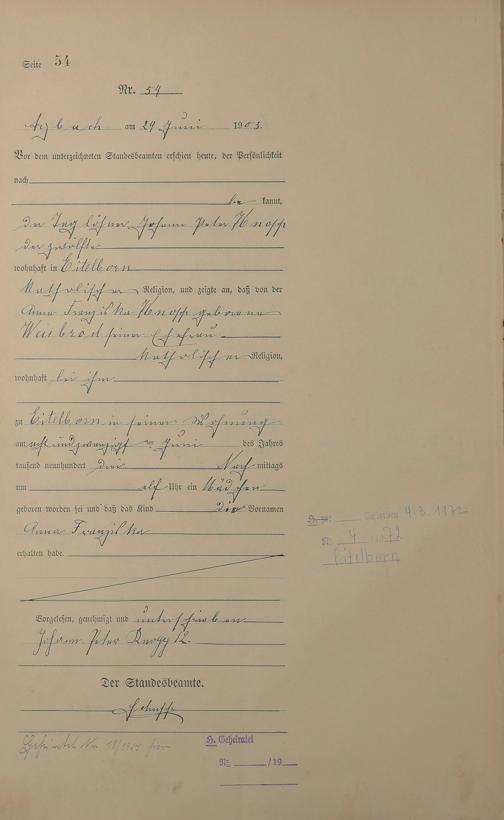 Seite 54
Nr. 54
Arzbach am 29 Juni 1903.
Vor dem unterzeichneten Standesbeamten erschien heute, der Persönlichkeit
nach
be kannt,
der Tag löhner Johann Peter Knopp
der zwölfte
wohnhaft in Eitelborn
Katholischer Religion, und zeigte an, daß von der
Anna Franziska Knopp geborene
Weisbrod seiner Ehefrau
Katholischer Religion,
wohnhaft bei ihm
zu Eitelborn in seiner Wohnung
am acht und zwanzigst ten Juni des Jahres
tausend neunhundert drei Nach mittags
um elf Uhr ein Mädchen
geboren worden sei und daß das Kind die Vornamen
Anna Franziska
erhalten habe.
Vorgelesen, genehmigt und unterschrieben
Johann Peter Knopp 12.
Der Standesbeamte.
H. Geheiratet
№ /19
Gestorben 4.3.1972
№ 4 1972
Eitelborn